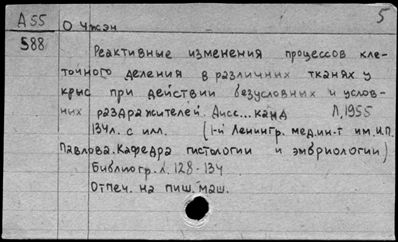 А55
О Чжэн
5
588
Реактивные изменения процессов кле-
точного деления в различных тканях у
крыс при действии безусловных и услов-
ных раздражителей. Дисс... канд Л, 1955
134л. с илл. (1-й Ленингр. мед.ин-т им. И.П.
Павлова. Кафедра гистологии и эмбриологии)
Библиогр. л. 128-134
Отпеч. на пиш. маш.